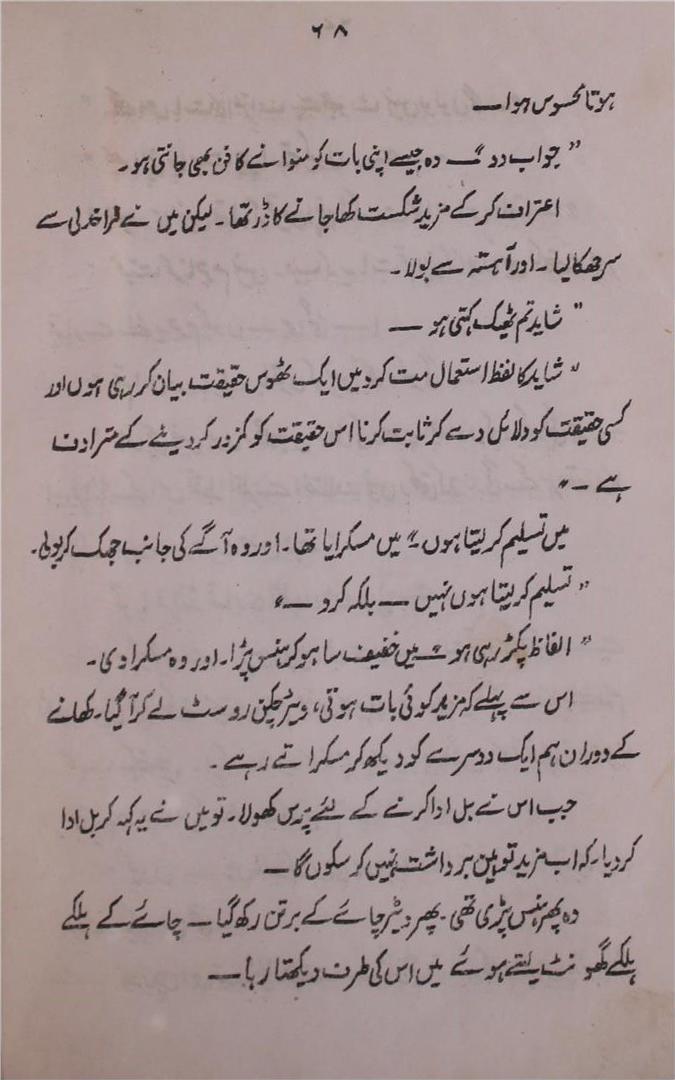 ۶۸
ہوتا محسوس ہوا ــــ
" جواب دو " ـ وہ جیسے اپنی بات کو منوانے کا فن بھی جانتی ہو ۔
اعتراف کر کے مزید شکست کھا جانے کا ڈر تھا ۔ لیکن میں نے فراخدلی سے
سر جھکا لیا ۔ اور آہستہ سے بولا ۔
" شاید تم ٹھیک کہتی ہو ــــ
" شاید کا لفظ استعمال مت کرو میں ایک ٹھوس حقیقت بیان کر رہی ہوں اور
کسی حقیقت کو دلائل دے کر ثابت کرنا اس حقیقت کو کمزور کر دینے کے مترادف
ہے ۔ "
میں تسلیم کر لیتا ہوں ۔" میں مسکرایا تھا ۔ اور وہ آگے کی جانب جھک کر بولی ۔
" تسلیم کر لیتا ہوں نہیں ــــ بلکہ کرو ــــ "
" الفاظ پکڑ رہی ہو " ــ میں خفیف سا ہو کر ہنس پڑا ۔ اور وہ مسکرا دی ۔
اس سے پہلے کہ مزید کوئی بات ہوتی ، ویٹر چکن روسٹ لے کر آ گیا ۔ کھانے
کے دوران ہم ایک دوسرے کو دیکھ کر مسکراتے رہے ۔
جب اس نے بل ادا کرنے کے لئے پرس کھولا ۔ تو میں نے یہ کہہ کر بل ادا
کر دیا ۔ کہ اب مزید توہین برداشت نہیں کر سکوں گا ــــ
وہ پھر ہنس پڑی تھی ۔ پھر ویٹر چائے کے برتن رکھ گیا ــــ چائے کے ہلکے
ہلکے گھونٹ لیتے ہوئے میں اس کی طرف دیکھتا رہا ــــ